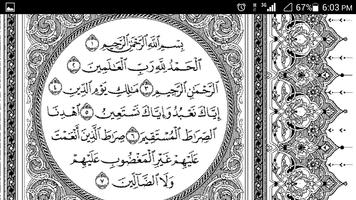 3G 67% 6:03 PM
بِسْمِ ٱللَّهِ ٱلرَّحْمَٰنِ ٱلرَّحِيمِ ١
ٱلْحَمْدُ لِلَّهِ رَبِّ ٱلْعَٰلَمِينَ ٢
ٱلرَّحْمَٰنِ ٱلرَّحِيمِ ٣ مَٰلِكِ يَوْمِ ٱلدِّينِ ٤
إِيَّاكَ نَعْبُدُ وَإِيَّاكَ نَسْتَعِينُ ٥ ٱهْدِنَا
ٱلصِّرَٰطَ ٱلْمُسْتَقِيمَ ٦ صِرَٰطَ ٱلَّذِينَ أَنْعَمْتَ
عَلَيْهِمْ غَيْرِ ٱلْمَغْضُوبِ عَلَيْهِمْ
وَلَا ٱلضَّآلِّينَ ٧